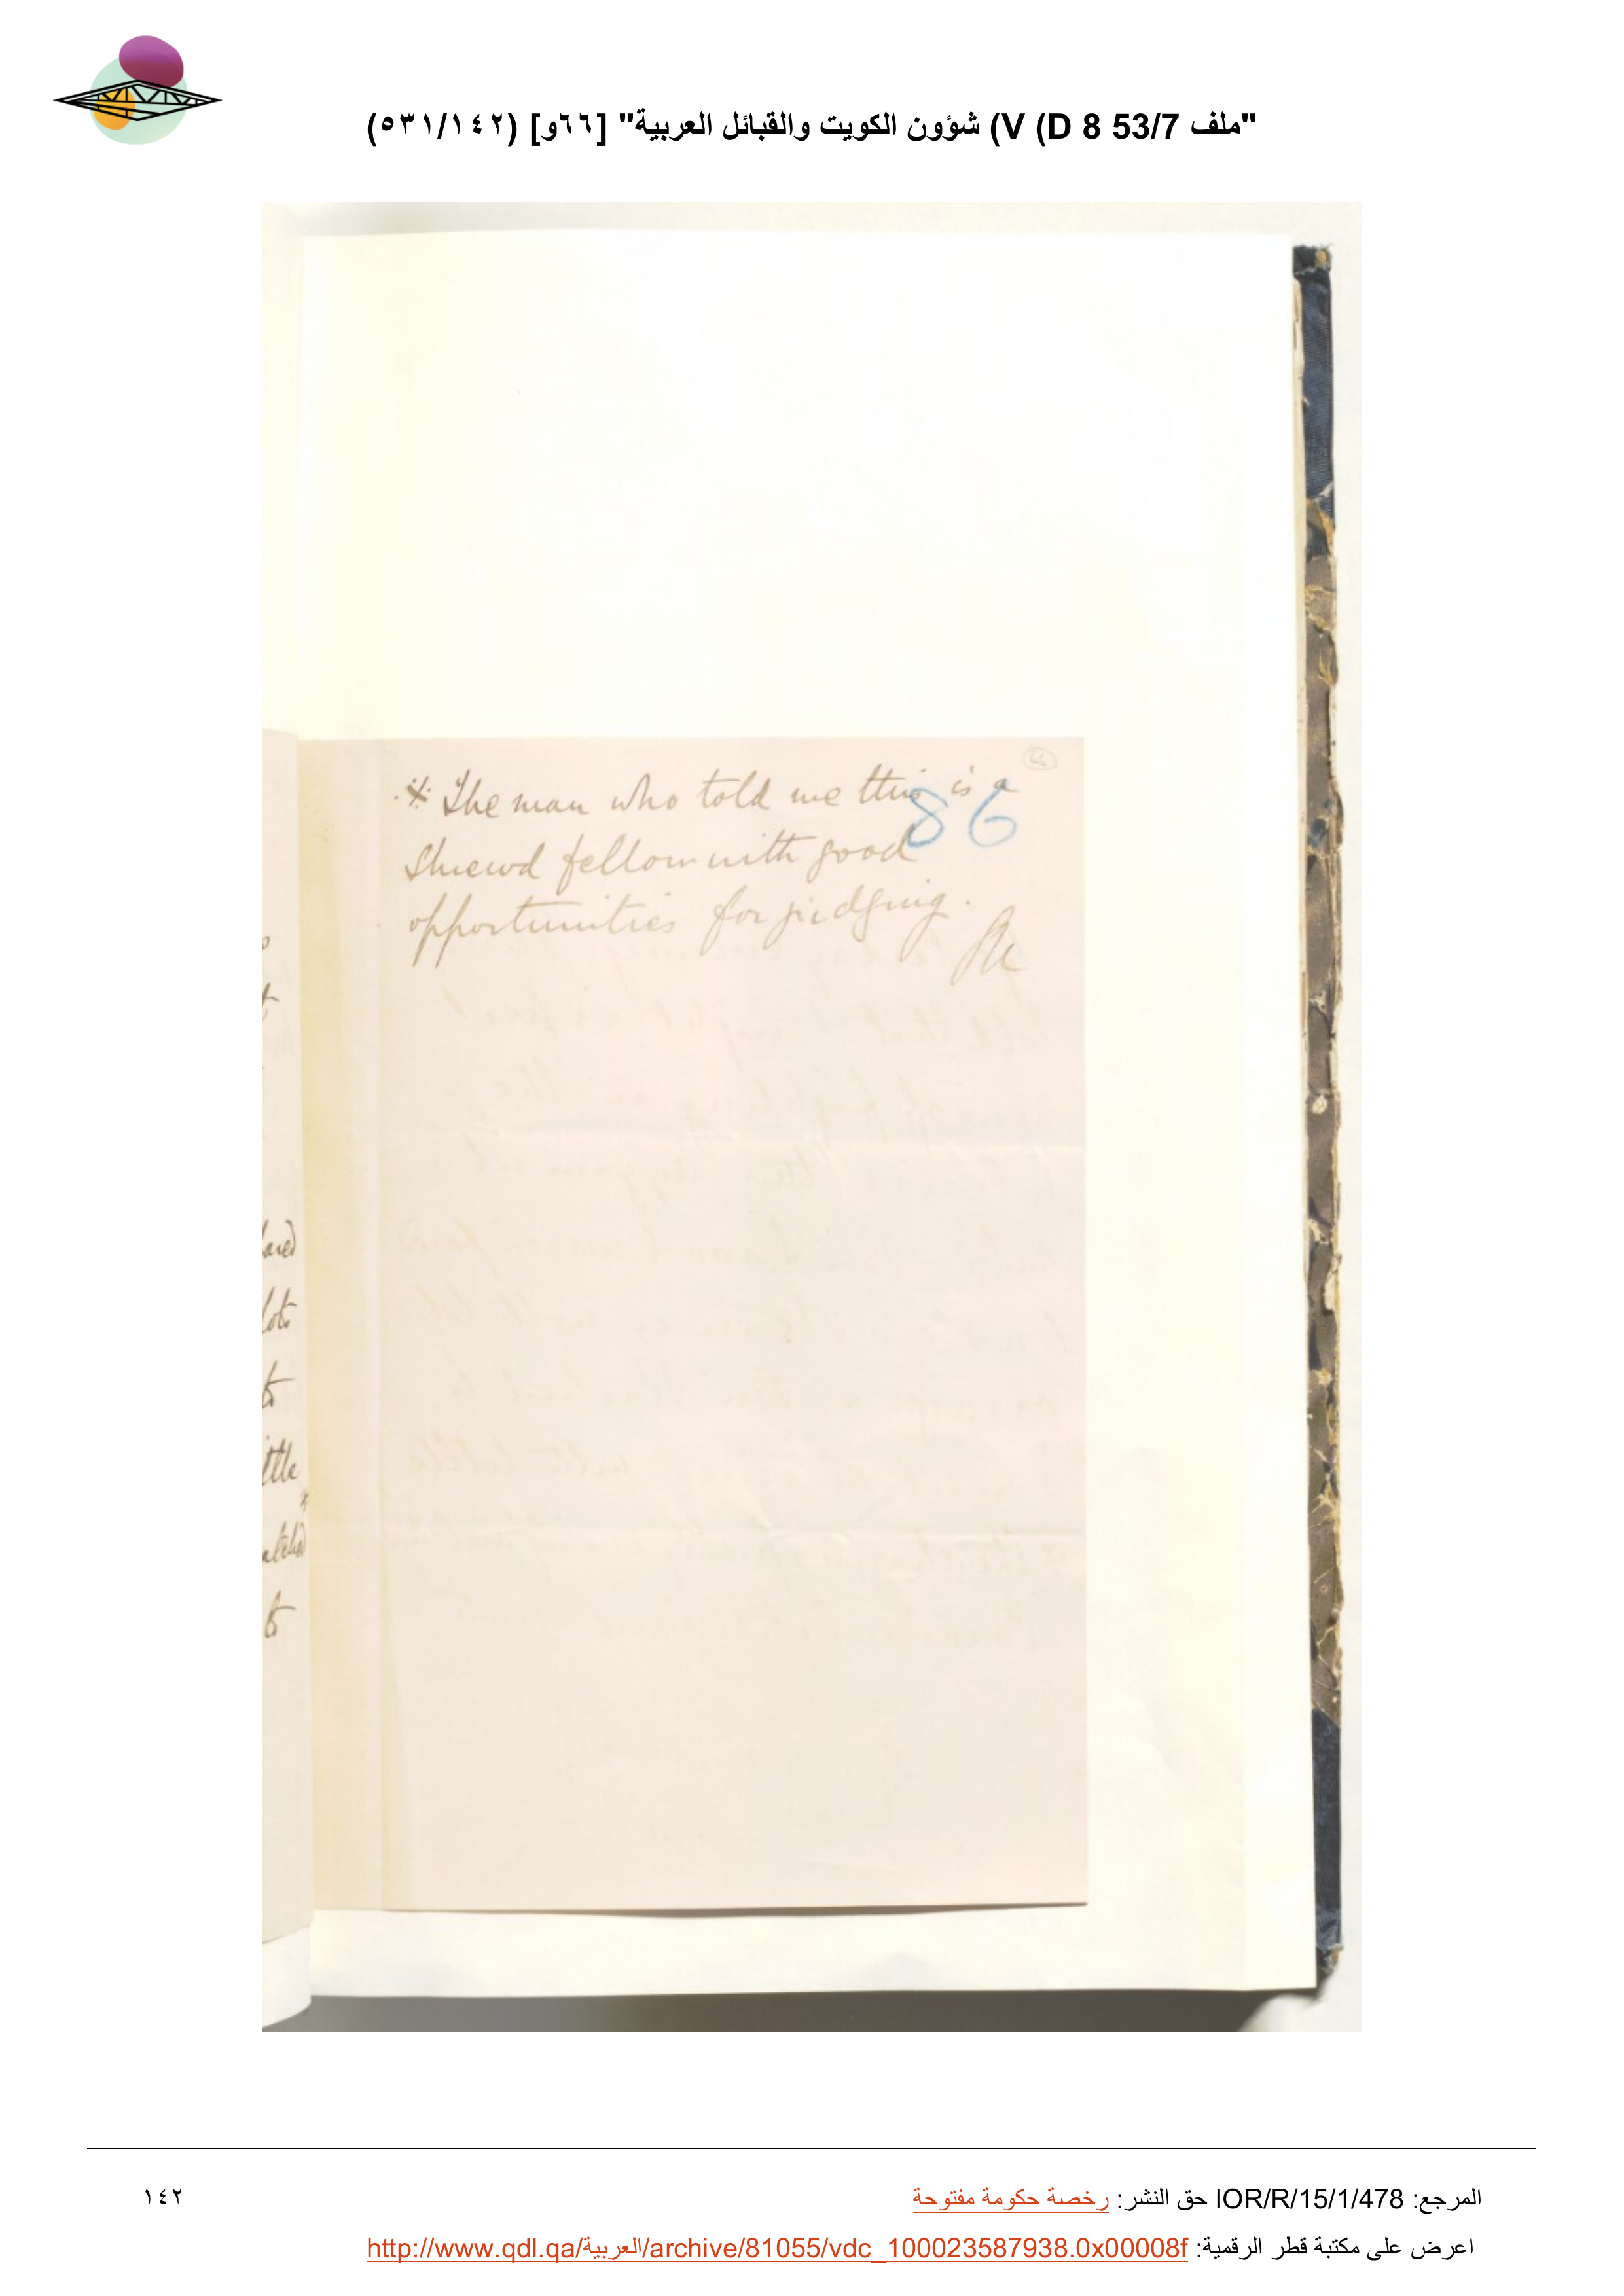 "ملف 53/7 V (D 8) شؤون الكويت والقبائل العربية" [٦٦و] (٥٣١/١٤٢)
66
86
※ The man who told me this is a
shrewd fellow with good
opportunities for judging.
t
ared
lots
to
ttle
*
to
المرجع: IOR/R/15/1/478 حق النشر: رخصة حكومة مفتوحة
١٤٢
اعرض على مكتبة قطر الرقمية: http://www.qdl.qa/العربية/archive/81055/vdc_100023587938.0x00008f